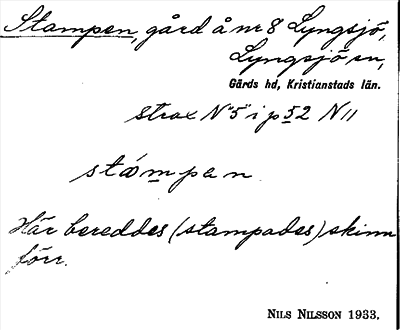 Stampen, gård å nr 8 Lyngsjö,
Lyngsjö sn,
Gårds hd, Kristianstads län.
strax N "5" i p 52 N 11
stampen
Här bereddes (stampades) skinn
förr.
NILS NILSSON 1933.